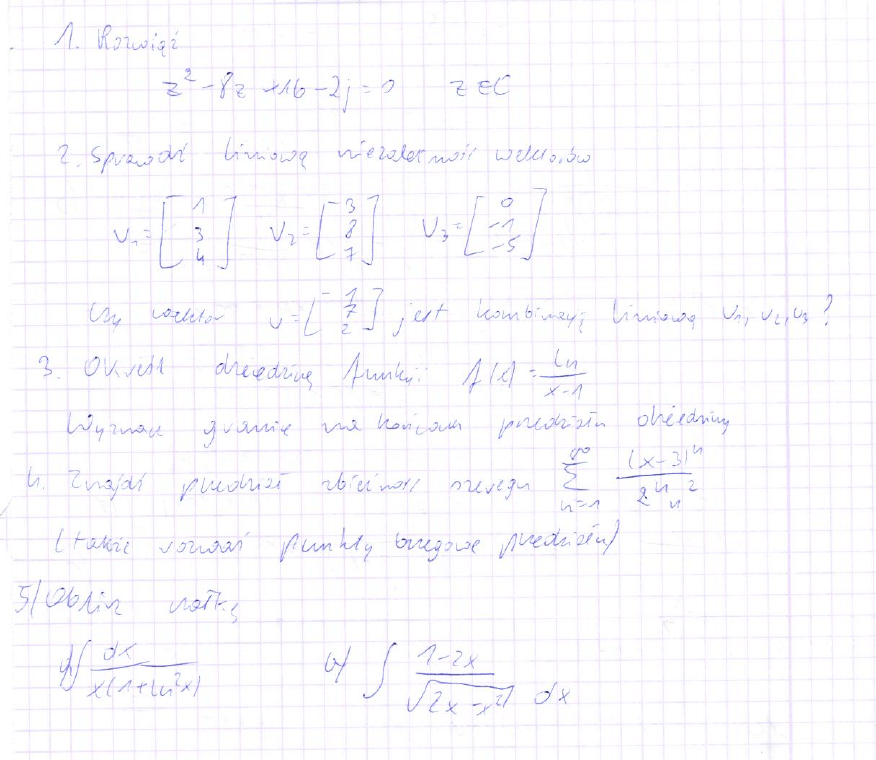 1. Rozwiąż
z² - 8z + 16 - 2j = 0 z ∈ C
2. Sprawdź liniową niezależność wektorów
v₁ = [1 3 4] v₂ = [-3 8 7] v₃ = [0 -1 -5]
Czy wektor v = [-1 7 2] jest kombinacją liniową v₁, v₂, v₃ ?
3. Określ dziedzinę funkcji f(x) = ln / x-1
Wyznacz granice na końcach przedziału dziedziny
4. Znajdź przedział zbieżność szeregu ∑ n=1 ∞ (x-3)ⁿ / 2ⁿ n²
(także rozważ punkty brzegowe przedziału)
5) Oblicz całkę
a) ∫ dx / x(1+ln²x) b) ∫ 1-2x / √(2x-x²) dx